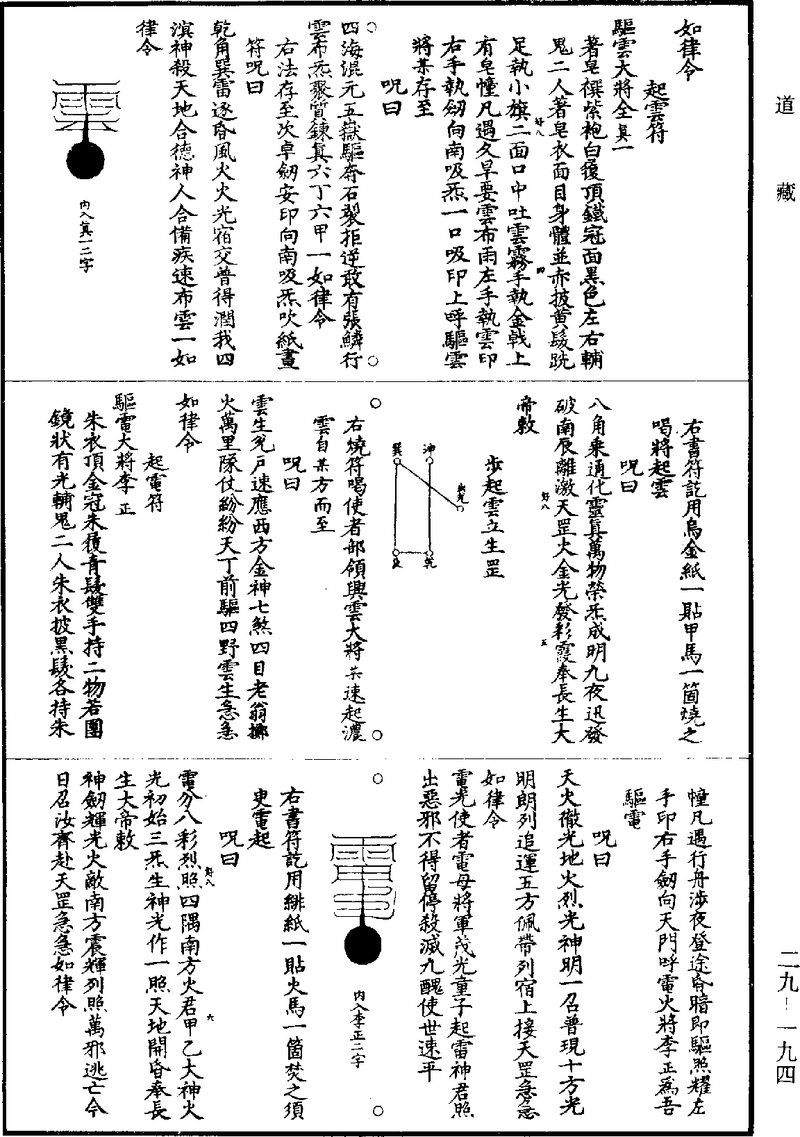 道藏
如律令
起雲符
驅雲大將全真一
著皂襈紫袍白履頂鐵冠面黑色左右輔
鬼二人著皂衣面目身體並赤披黃髮跣
足執小旗二面口中吐雲霧手執金戟上
有皂幢凡遇久旱要雲布雨左手執雲印
右手執劒向南吸炁一口吸印上呼驅雲
將某存至
呪曰
四海混元五嶽驅奔石裂拒逆敢有張鱗行
雲布炁聚質鍊真六丁六甲一如律令
右法存至次卓劒安印向南吸炁吹紙畫
符呪曰
乾角巽雷逐昏風火火光宿交普得潤我四
滨神殺天地合德神人合備疾速布雲一如
律令
內入真一二字
右書符訖用烏金紙一貼甲馬一箇燒之
喝將起雲
呪曰
八角乘通化靈真萬物榮炁成明九夜迅發
破南辰離激天罡大金光發彩霞奉長生大
帝敕
步起雲立生罡
坤
巽
艮
乾
右燒符喝使者部領興雲大將某速起濃
雲自某方而至
呪曰
雲生兌戶速應西方金神七煞四目老翁擲
火萬里隊仗紛紛天丁前驅四野雲生急急
如律令
起電符
驅電大將李正
朱衣頂金冠朱履青髮雙手持二物若團
鏡狀有光輔鬼二人朱衣披黑髮各持朱
幢凡遇行舟涉夜登途昏暗即驅照耀左
手印右手劒向天門呼電火將李正為吾
驅電
呪曰
天火徹光地火烈光神明一召普現十方光
明朗列追運五方佩帶列宿上接天罡急急
如律令
電光使者電母將軍茂光童子起雷神君照
出惡邪不得留停殺滅九醜使世速平
內入李正二字
右書符訖用緋紙一貼火馬一箇焚之須
史電起
呪曰
電分八彩烈照四隅南方火君甲乙大神火
光初始三炁生神光作一照天地開昏奉長
生大帝敕
神劒輝光火敵南方震輝列照萬邪逃亡今
日召汝齊赴天罡急急如律令
二九-一九四